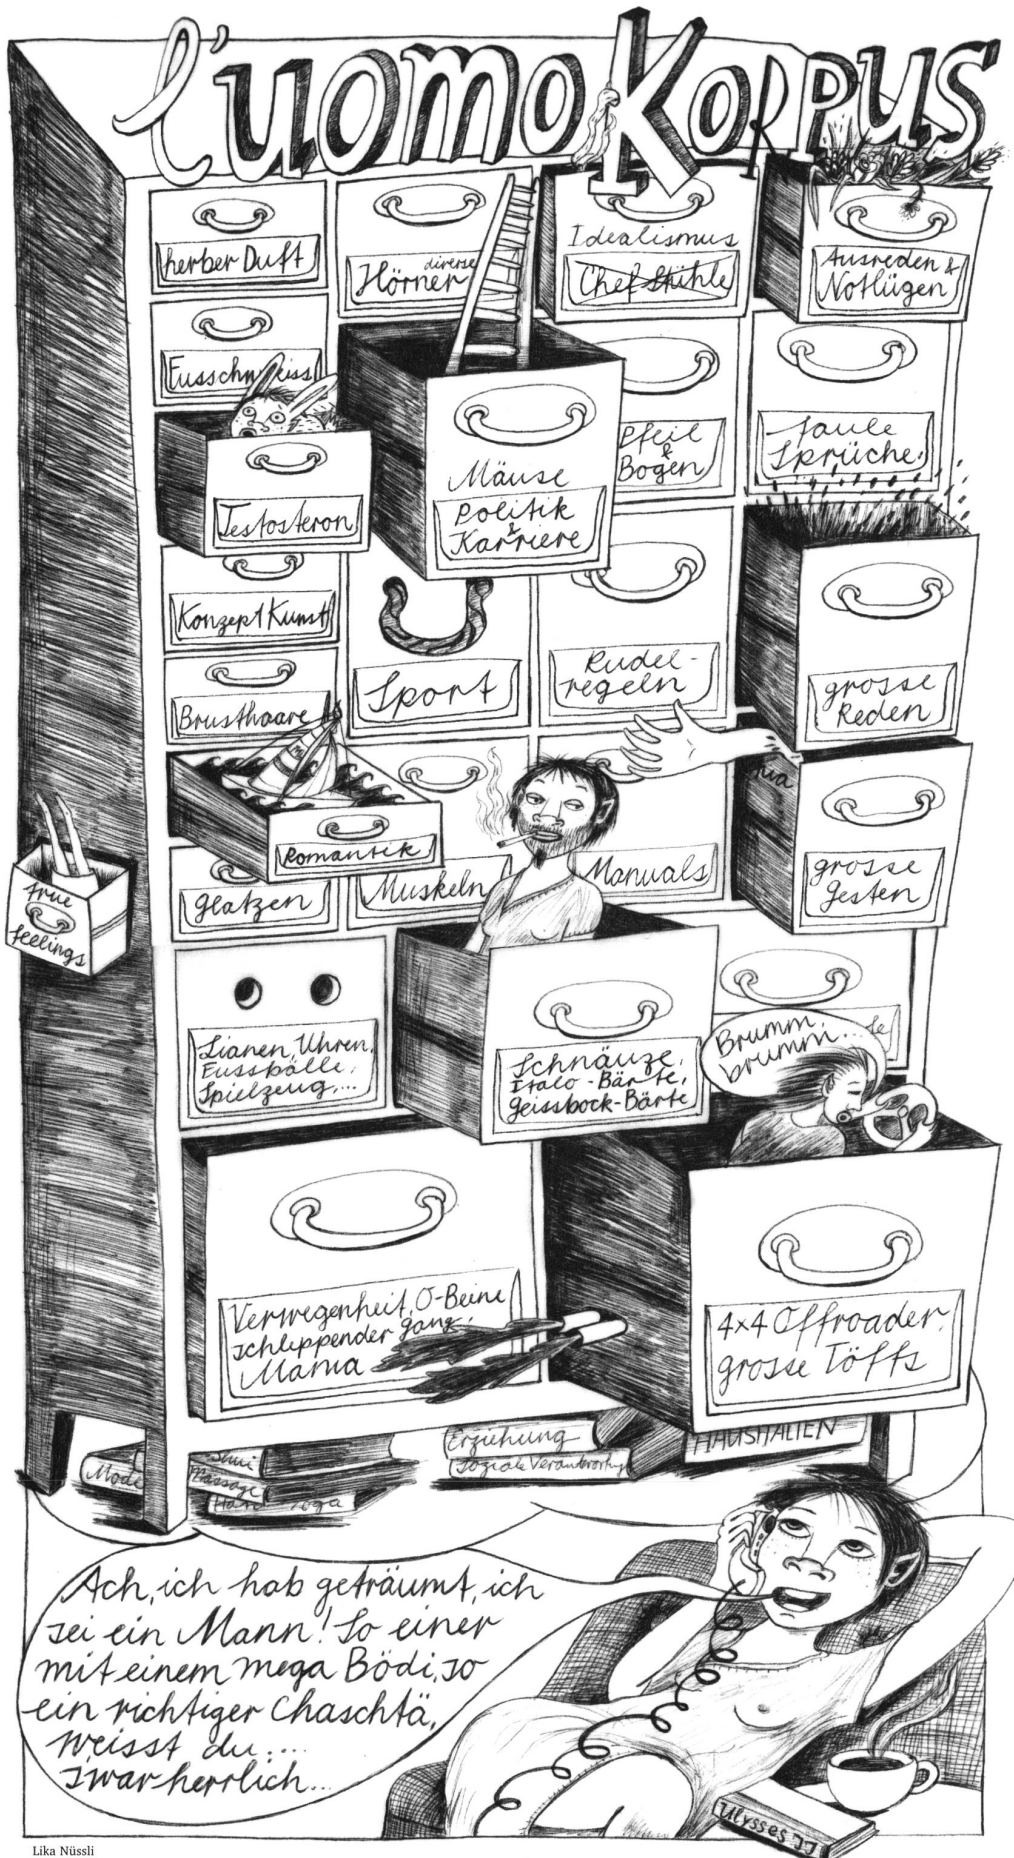 l'uomo Korpus
herber Duft
diverse
Hörner
Idealismus
Chef Stühle
Ausreden &
Notlügen
Fussschweiss
Pfeil
&
Bogen
faule
Sprüche.
Testosteron
Mäuse
Politik
&
Karriere
Konzept Kunst
Sport
Rudel-
regeln
grosse
Reden
Brusthaare
Romantik
Glatzen
Muskeln
Manuals
grosse
Gesten
true
feelings
Lianen, Uhren,
Fussbälle,
Spielzeug,...
Schnäuze,
Italo-Bärte,
Geissbock-Bärte
Brumm,
brumm...
Verwegenheit, O-Beine
schleppender Gang,
Mama
4x4 Offroader,
grosse Töffs
Mode
Massage
Erziehung
Soziale Verantwortung
HAUSHALTEN
Ach, ich hab geträumt, ich
sei ein Mann! So einer
mit einem mega Bödi, so
ein richtiger Chaschtä,
weisst du....
s'war herrlich...
Ulysses JJ
Lika Nüssli